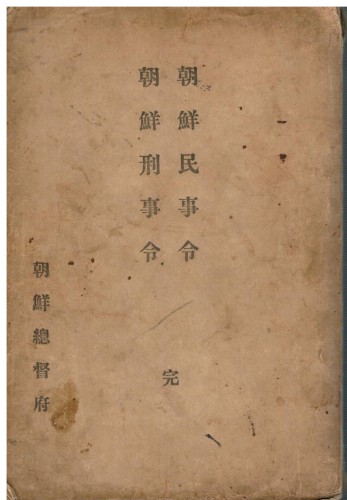 朝鮮民事令
朝鮮刑事令
完
朝鮮總督府